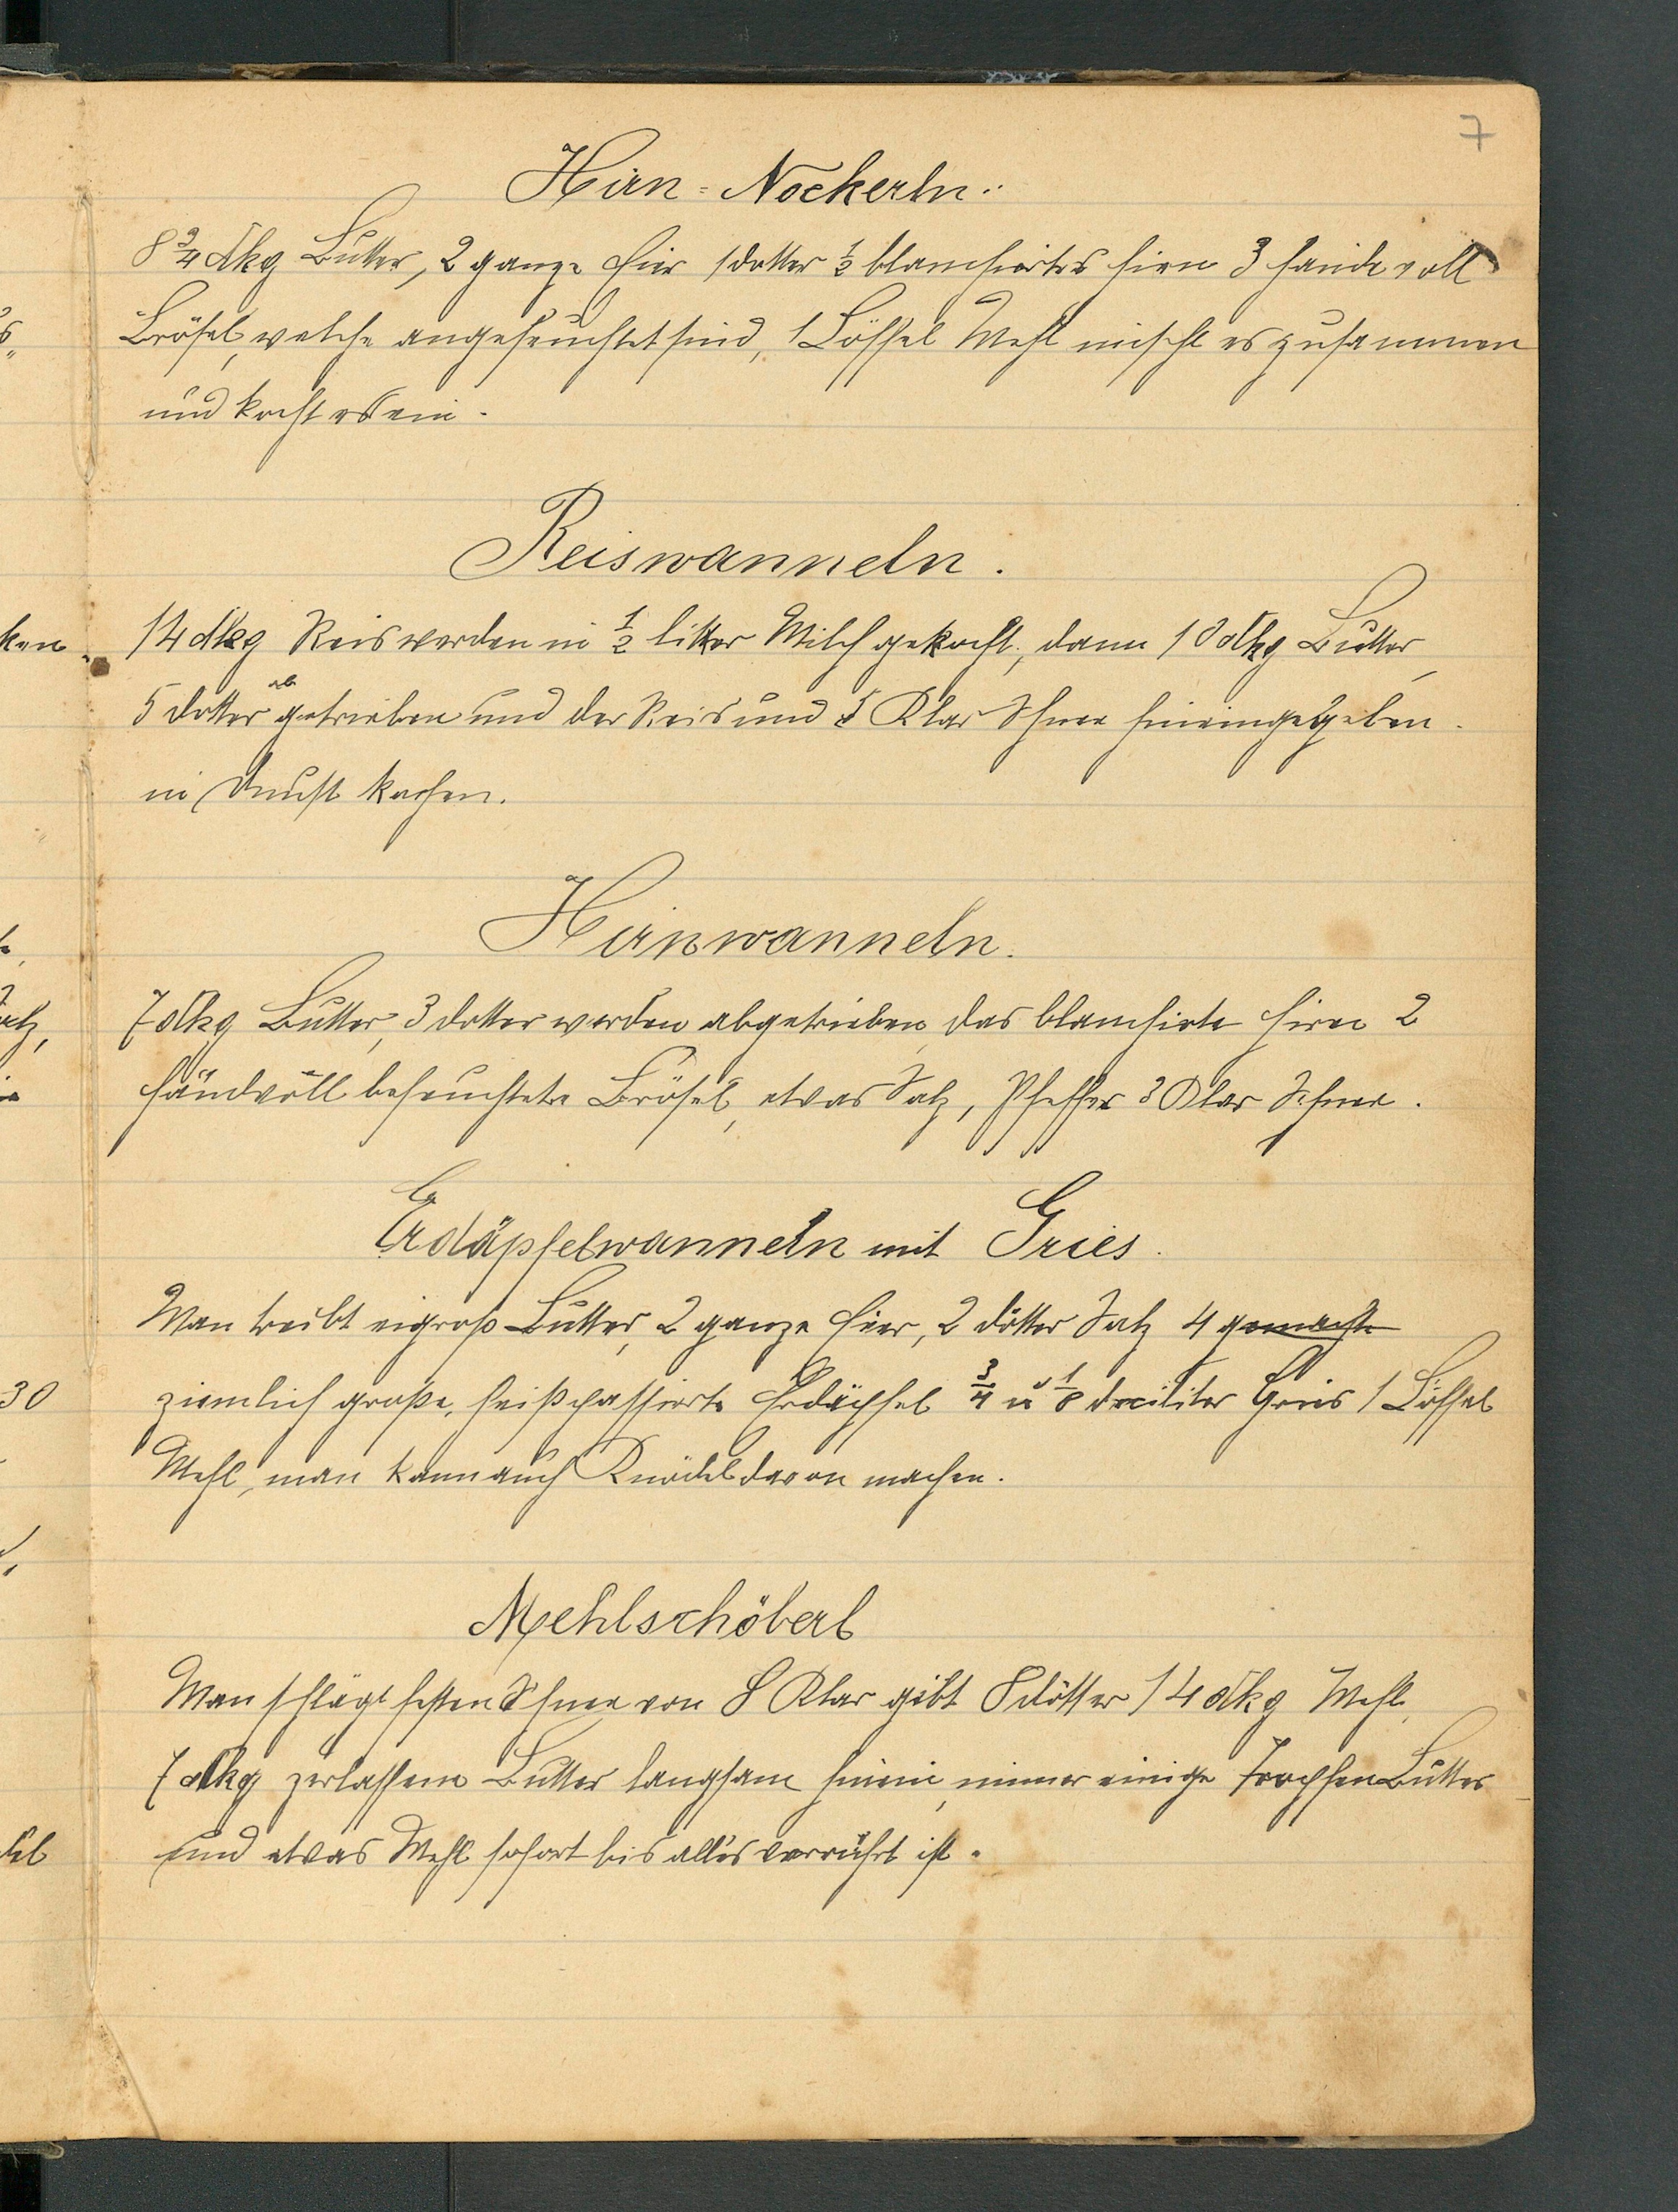 7
Hirn-Nockerln:
8 3/4 dkg Butter, 2 ganze Eier 1 dotter 1/2 blanchiertes Hirn 3 Hände voll
Brösel, welche angefeuchtet sind, 1 Löffel Mehl mischt es zusammen
und kocht es ein.
Reiswanneln.
14 dkg Reis werden in 1/2 litter Milch gekocht, dann 10 dkg Butter
5 dotter abgetrieben und der Reis und 5 Klar Schnee hineingegeben.
in Dunst kochen.
Hirnwanneln.
7 dkg Butter, 3 dotter werden abgetrieben, das blanchirte Hirn 2
Händvoll befeuchtete Brösel, etwas Salz, Pfeffer 3 Klar Schnee.
Erdäpfelwanneln mit Gries.
Man treibt eigroß Butter, 2 ganze Eier, 2 dotter Salz 4 gemachte
ziemlich große, heißpassierte Erdäpfel 3/4 u 1/8 deciliter Gries 1 Löffel
Mehl, man kann auch Knödel davon machen.
Mehlschöberl
Man schlägt festen Schnee von 8 Klar gibt 8 dötter 14 dkg Mehl,
7 dkg zerlassene Butter langsam hinein, immer einige Tropfen Butter
und etwas Mehl sofort bis alles verrührt ist.
ken
30